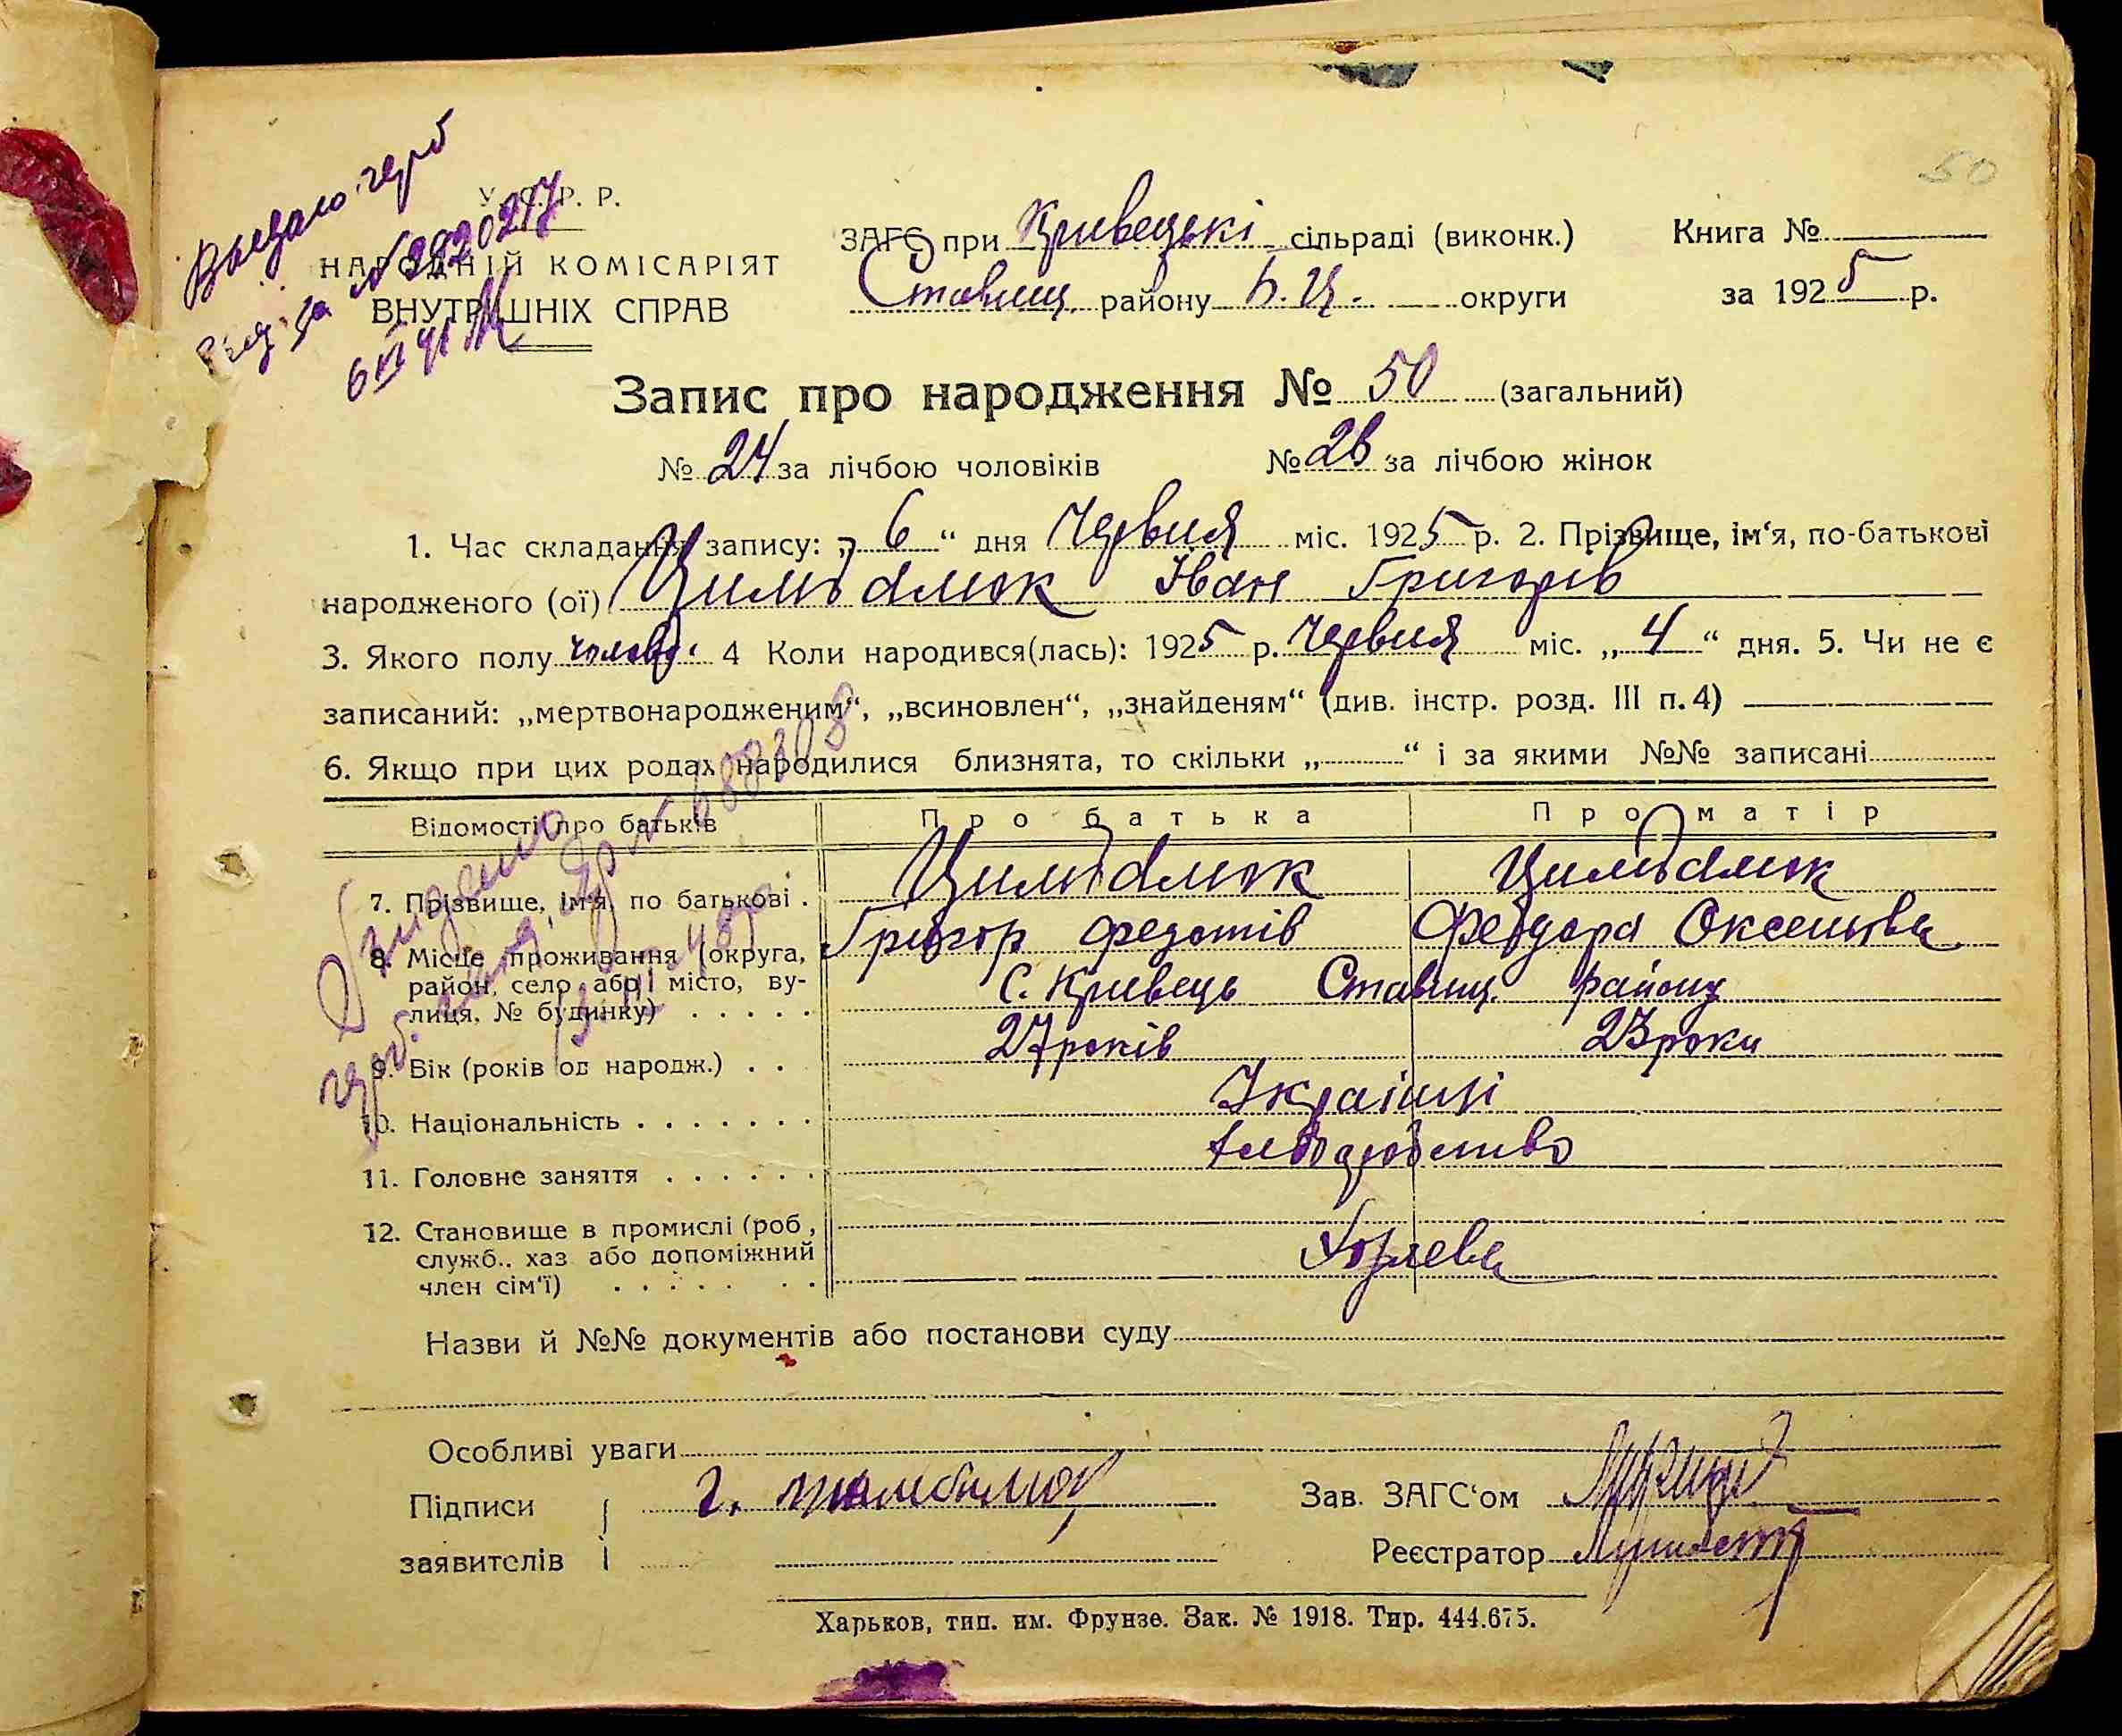 50
Видано герб
за № 2920217
6 VI 41
У. С. Р. Р.
НАРОДНІЙ КОМІСАРІЯТ
ВНУТРІШНІХ СПРАВ
ЗАГС при Кривецькі сільраді (виконк.)
Ставищ. району Б. Ц. округи
Книга №
за 1925 р.
Запис про народження № 50 (загальний)
№ 24 за лічбою чоловіків № 26 за лічбою жінок
1. Час складання запису: „ 6 “ дня Червня міс. 1925 р. 2. Прізвище, ім‘я, по-батькові
народженого (ої) Цимбалюк Іван Григорів
3. Якого полу чолов. 4 Коли народився(лась): 1925 р. Червня міс. „ 4 “ дня. 5. Чи не є
записаний: „мертвонародженим“, „всиновлен“, „знайденям“ (див. інстр. розд. III п. 4)
6. Якщо при цих родах народилися близнята, то скільки „ “ і за якими №№ записані
Відомості про батьків Про батька Про матір
7. Прізвище, ім‘я, по батькові . Цимбалюк Цимбалюк
Григор Федотів Федора Оксентіва
8. Місце проживання (округа,
район, село або місто, ву-
лиця, № будинку) . . . . . С. Кривець Ставищ. району
9. Вік (років од народж.) . . 27 років 23 роки
10. Національність . . . . . . . Українці
11. Головне заняття . . . . . . Хліборобство
12. Становище в промислі (роб,
служб.. хаз або допоміжний
член сім‘ї)
Назви й №№ документів або постанови суду
Особливі уваги
Підписи
заявителів
Г.
Зав. ЗАГС‘ом
Реєстратор
Харьков, тип. им. Фрунзе. Зак. № 1918. Тир. 444.675.